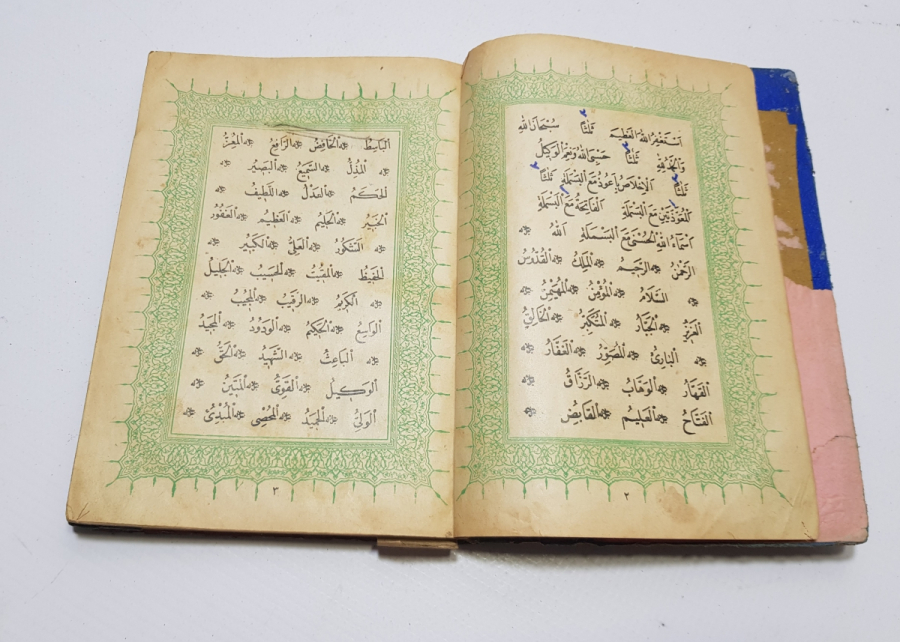 اَسْتَغْفِرُ اللهَ الْعَظِيمَ ثَلٰثًا ٣ سُبْحَانَ اللهِ
وَالْحَمْدُ لِلّٰهِ ثَلٰثًا ٣ حَسْبِيَ اللهُ وَنِعْمَ الْوَكِيلُ
ثَلٰثًا ٣ اَلْاِخْلَاصُ بِاَعُوذُ مَعَ الْبَسْمَلَةِ ثَلٰثًا ٣
اَلْمُعَوِّذَتَيْنِ مَعَ الْبَسْمَلَةِ ١ اَلْفَاتِحَةُ مَعَ الْبَسْمَلَةِ ١
اَسْمَاءُ اللهِ الْحُسْنٰى مَعَ الْبَسْمَلَةِ اَللهُ
اَلرَّحْمٰنُ الرَّحِيمُ اَلْمَلِكُ اَلْقُدُّوسُ
اَلسَّلَامُ اَلْمُؤْمِنُ اَلْمُهَيْمِنُ
اَلْعَزِيزُ اَلْجَبَّارُ اَلْمُتَكَبِّرُ اَلْخَالِقُ
اَلْبَارِئُ اَلْمُصَوِّرُ اَلْغَفَّارُ
اَلْقَهَّارُ اَلْوَهَّابُ اَلرَّزَّاقُ
اَلْفَتَّاحُ اَلْعَلِيمُ اَلْقَابِضُ
٢
اَلْبَاسِطُ اَلْخَافِضُ اَلرَّافِعُ اَلْمُعِزُّ
اَلْمُذِلُّ اَلسَّمِيعُ اَلْبَصِيرُ
اَلْحَكَمُ اَلْعَدْلُ اَللَّطِيفُ
اَلْخَبِيرُ اَلْحَلِيمُ اَلْعَظِيمُ اَلْغَفُورُ
اَلشَّكُورُ اَلْعَلِيُّ اَلْكَبِيرُ
اَلْحَفِيظُ اَلْمُقِيتُ اَلْحَسِيبُ اَلْجَلِيلُ
اَلْكَرِيمُ اَلرَّقِيبُ اَلْمُجِيبُ
اَلْوَاسِعُ اَلْحَكِيمُ اَلْوَدُودُ اَلْمَجِيدُ
اَلْبَاعِثُ اَلشَّهِيدُ اَلْحَقُّ
اَلْوَكِيلُ اَلْقَوِيُّ اَلْمَتِينُ
اَلْوَلِيُّ اَلْحَمِيدُ اَلْمُحْصِي اَلْمُبْدِئُ
٣